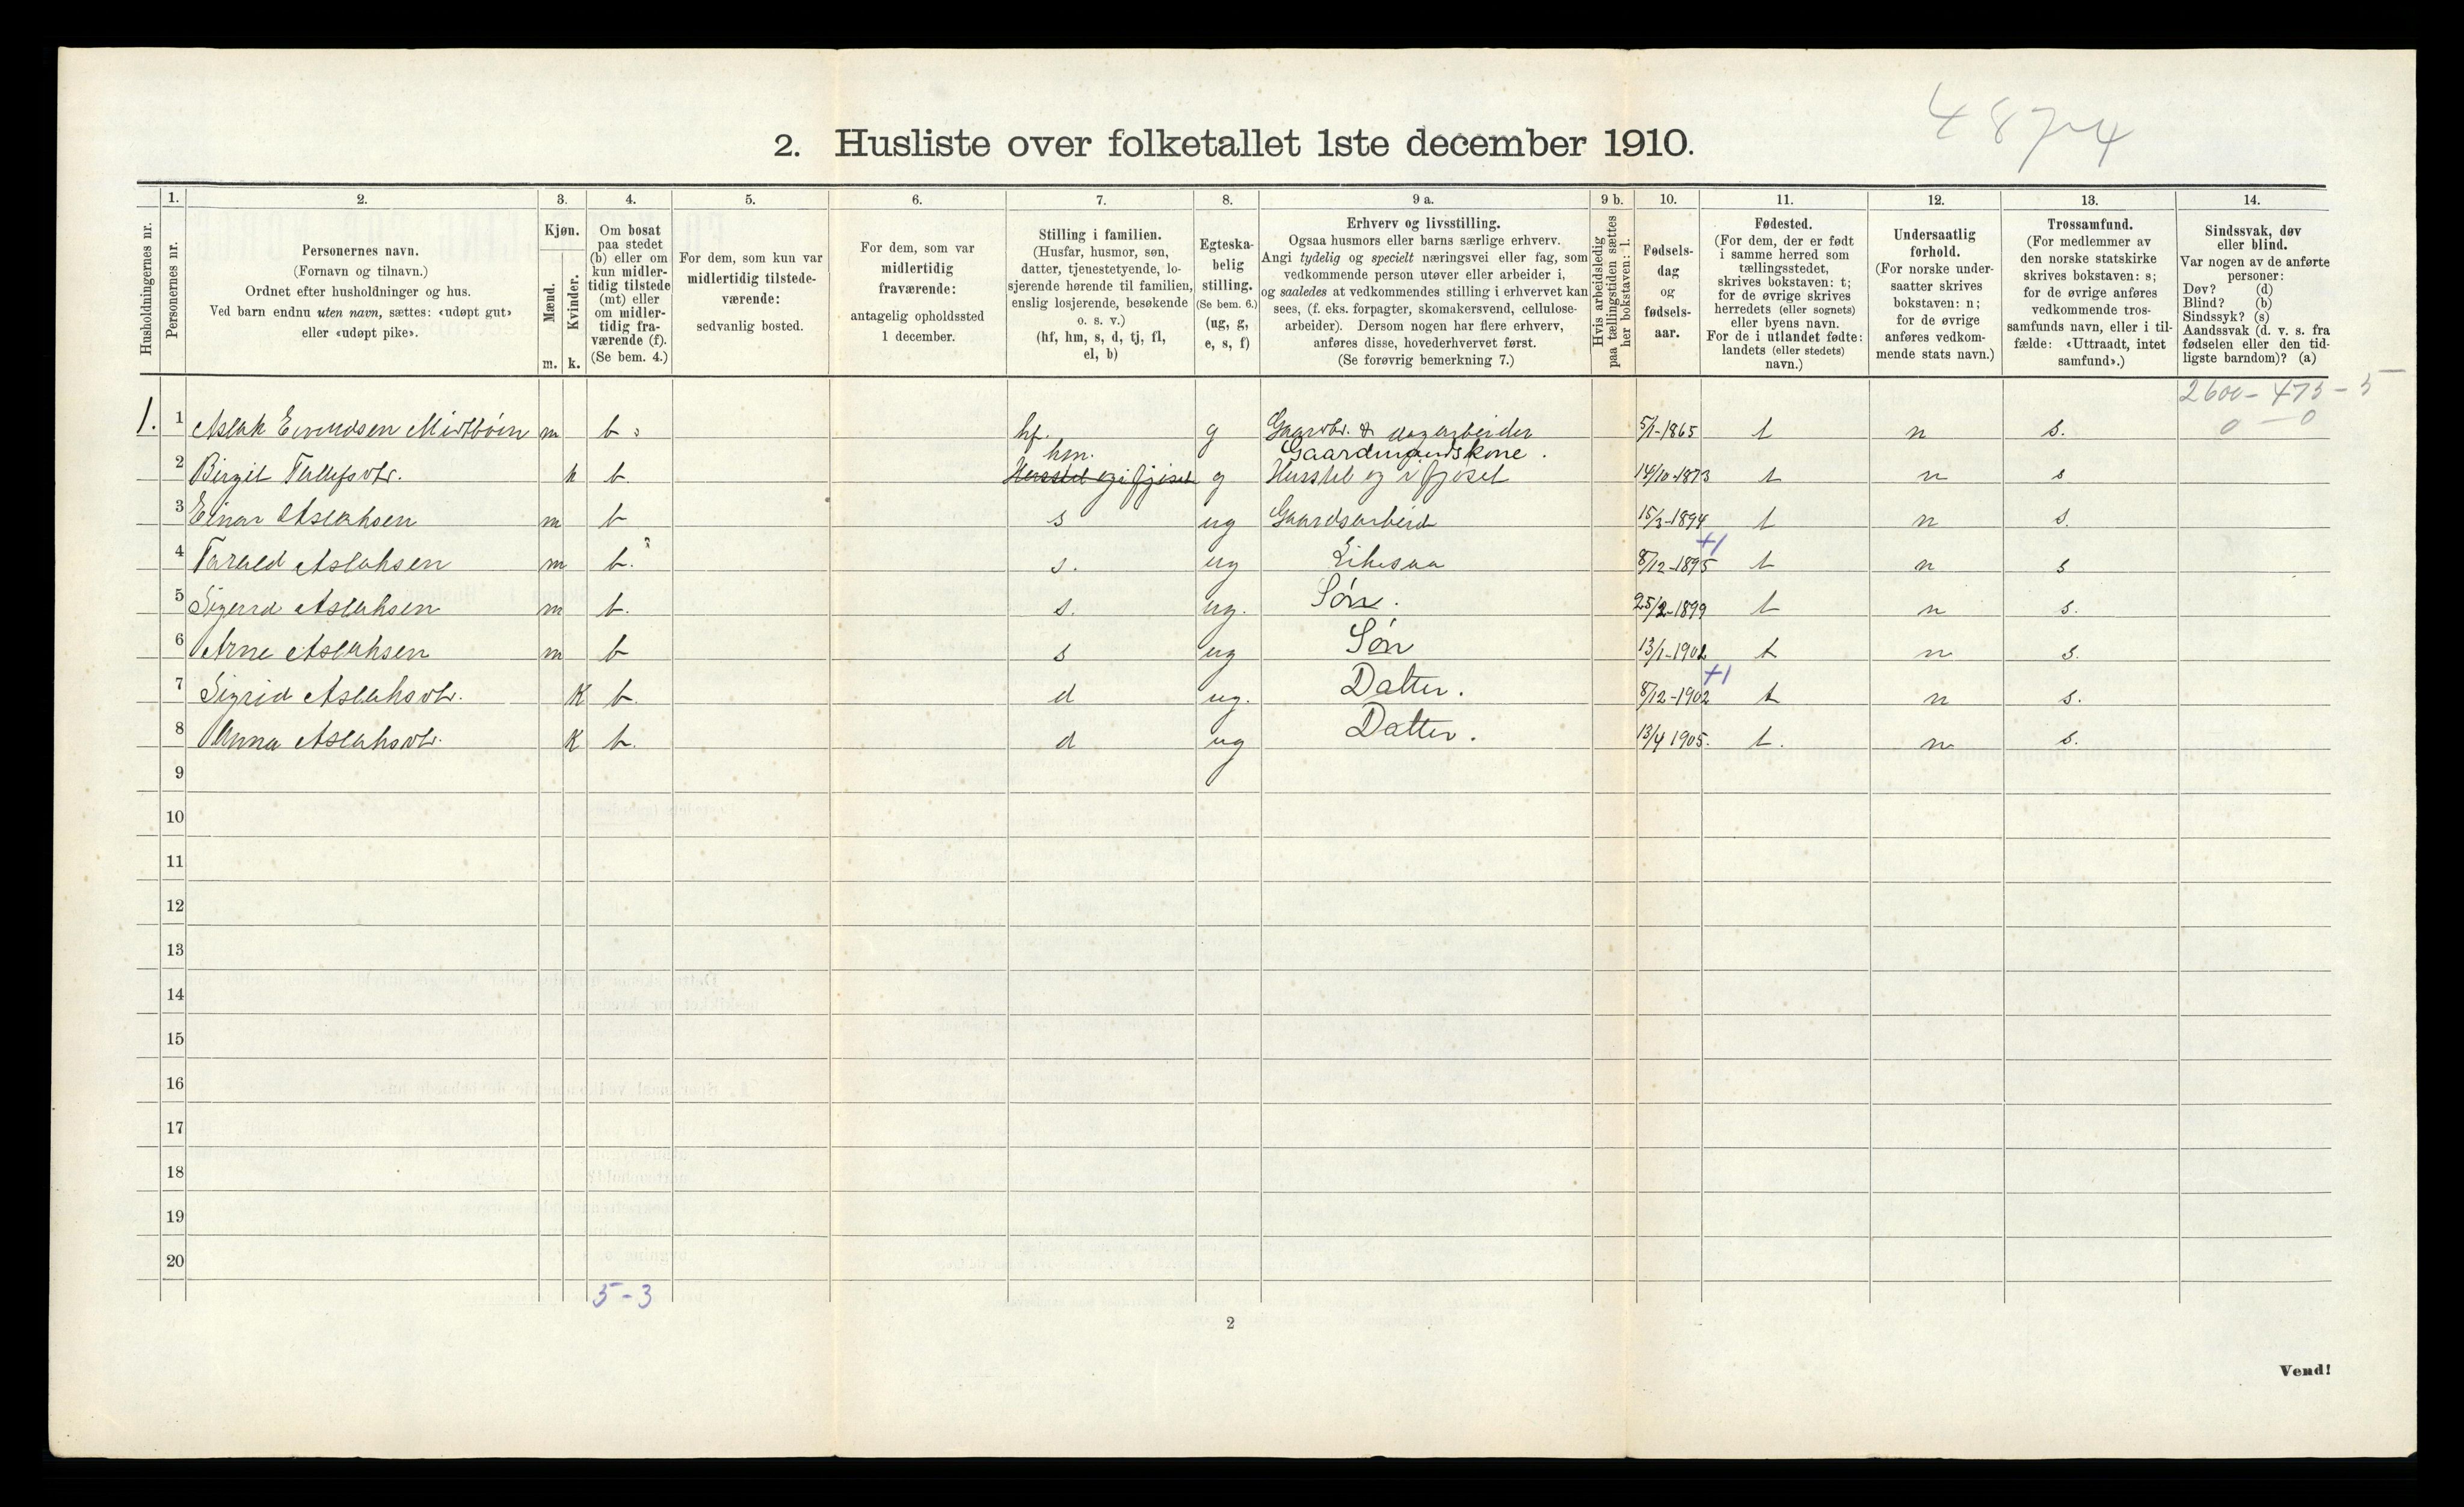 4874
2. Husliste over folketallet 1ste december 1910.
Husholdningernes nr.
1.
Personernes nr.
2.
Personernes navn.
(Fornavn og tilnavn.)
Ordnet efter husholdninger og hus.
Ved barn endnu uten navn, sættes: «udøpt gut»
eller «udøpt pike».
3.
Kjøn.
Mænd.
Kvinder.
m. k.
4.
Om bosat
paa stedet
(b) eller om
kun midler-
tidig tilstede
(mt) eller
om midler-
tidig fra-
værende (f).
(Se bem. 4.)
5.
For dem, som kun var
midlertidig tilstede-
værende:
sedvanlig bosted.
6.
For dem, som var
midlertidig
fraværende:
antagelig opholdssted
1 december.
7.
Stilling i familien.
(Husfar, husmor, søn,
datter, tjenestetyende, lo-
sjerende hørende til familien,
enslig losjerende, besøkende
o. s. v.)
(hf, hm, s, d, tj, fl,
el, b)
8.
Egteska-
belig
stilling.
(Se bem. 6.)
(ug, g,
e, s, f)
9 a.
Erhverv og livsstilling.
Ogsaa husmors eller barns særlige erhverv.
Angi tydelig og specielt næringsvei eller fag, som
vedkommende person utøver eller arbeider i,
og saaledes at vedkommendes stilling i erhvervet kan
sees, (f. eks. forpagter, skomakersvend, cellulose-
arbeider). Dersom nogen har flere erhverv,
anføres disse, hovederhvervet først.
(Se forøvrig bemerkning 7.)
9 b.
Hvis arbeidsledig
paa tællingstiden sættes
her bokstaven: l.
10.
Fødsels-
dag
og
fødsels-
aar.
11.
Fødested.
(For dem, der er født
i samme herred som
tællingsstedet,
skrives bokstaven: t;
for de øvrige skrives
herredets (eller sognets)
eller byens navn.
For de i utlandet fødte:
landets (eller stedets)
navn.)
12.
Undersaatlig
forhold.
(For norske under-
saatter skrives
bokstaven: n;
for de øvrige
anføres vedkom-
mende stats navn.)
13.
Trossamfund.
(For medlemmer av
den norske statskirke
skrives bokstaven: s;
for de øvrige anføres
vedkommende tros-
samfunds navn, eller i til-
fælde: «Uttraadt, intet
samfund».)
14.
Sindssvak, døv
eller blind.
Var nogen av de anførte
personer:
Døv? (d)
Blind? (b)
Sindssyk? (s)
Aandssvak (d. v. s. fra
fødselen eller den tid-
ligste barndom)? (a)
2600 - 475 - 5
0 - 0
1. 1 Aslak Eivindsen Midtbøen m b hf. g Gaardbr. & dagarbeider 5/1-1865 t n s.
hm. Gaardmandskone.
2 Birgit Tallefsdtr. k b Husstel og i fjöset g Husstel og i fjöset 14/10-1873 t n s
3 Einar Aslaksen m b s ug Gaardsarbeid 15/3-1894 t n s.
+1
4 Tarald Aslaksen m b. s. ug Likesaa 8/12-1895 t n s
5 Sigurd Aslaksen m b. s. ug. Søn. 25/2-1899 t n s.
6 Arne Aslaksen m b s ug Søn 13/1-1901 t n s.
+1
7 Sigrid Aslaksdtr. K b. d ug. Datter. 8/12-1902 t n s.
8 Anna Aslaksdtr. K b. d ug Datter. 13/4 1905. t. n s.
9
10
11
12
13
14
15
16
17
18
19
20
5 - 3
2
Vend!